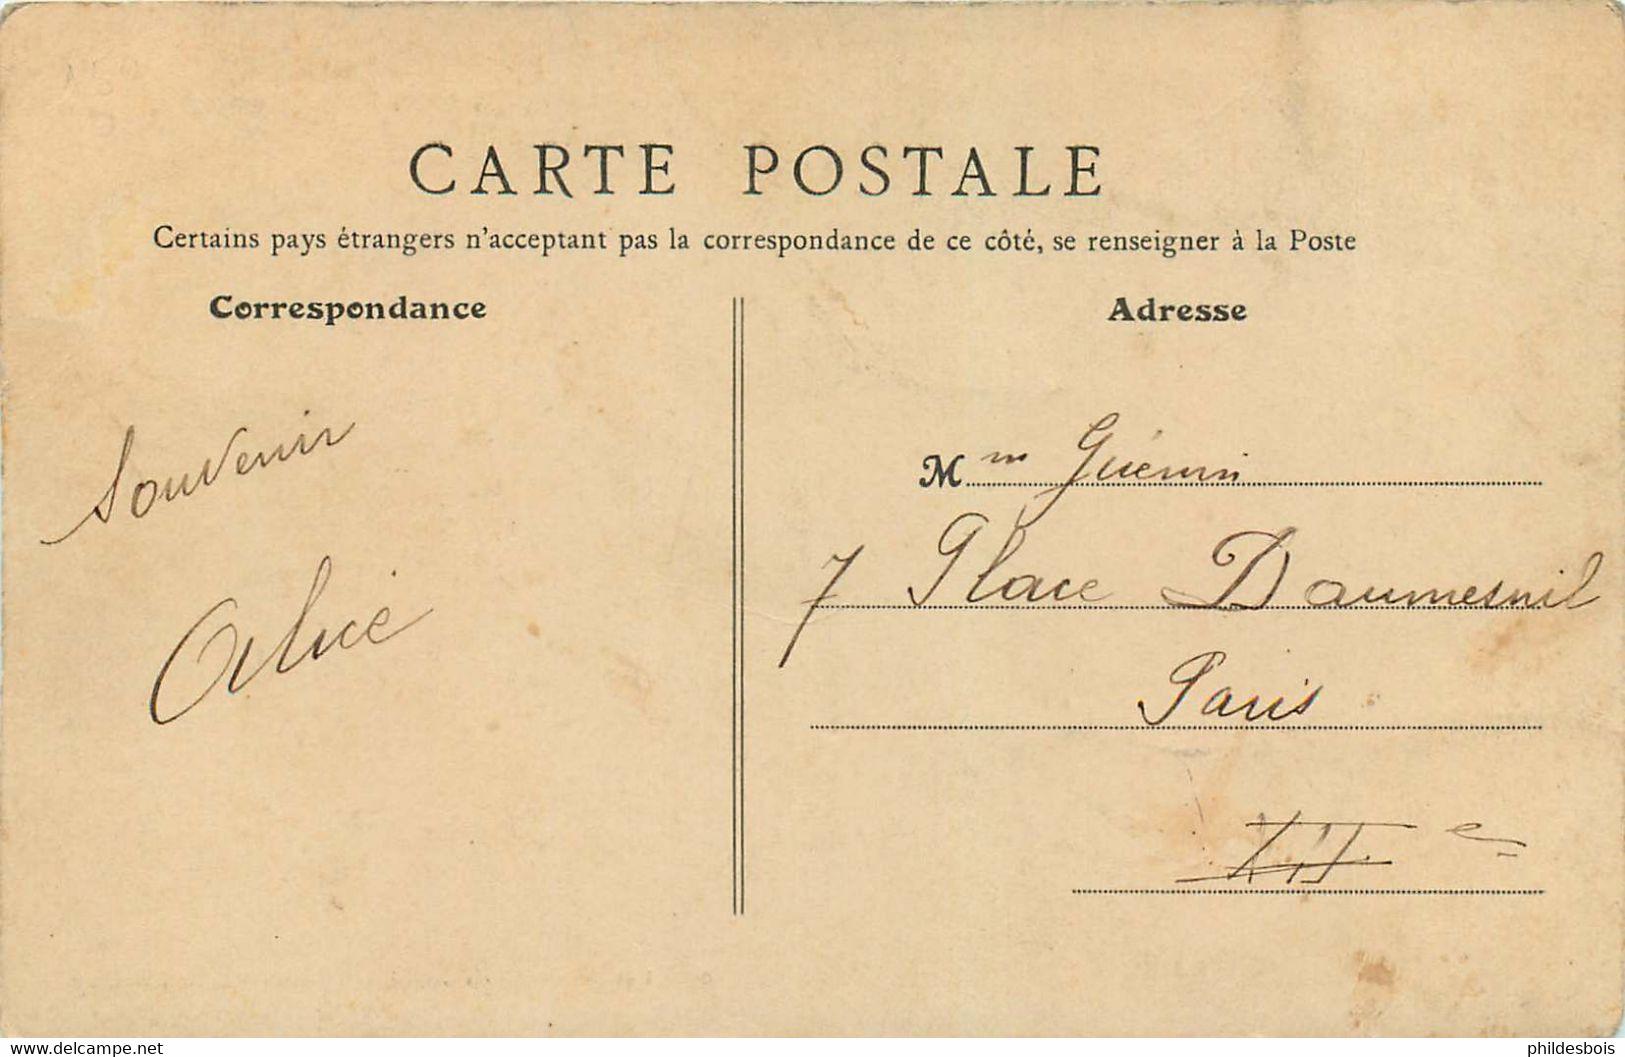 CARTE POSTALE
Certains pays étrangers n'acceptant pas la correspondance de ce côté, se renseigner à la Poste
Correspondance
Souvenir
Alice
Adresse
Mm Guérin
7 Place Daumesnil
Paris
XIIe
www.delcampe.net
phildesbois